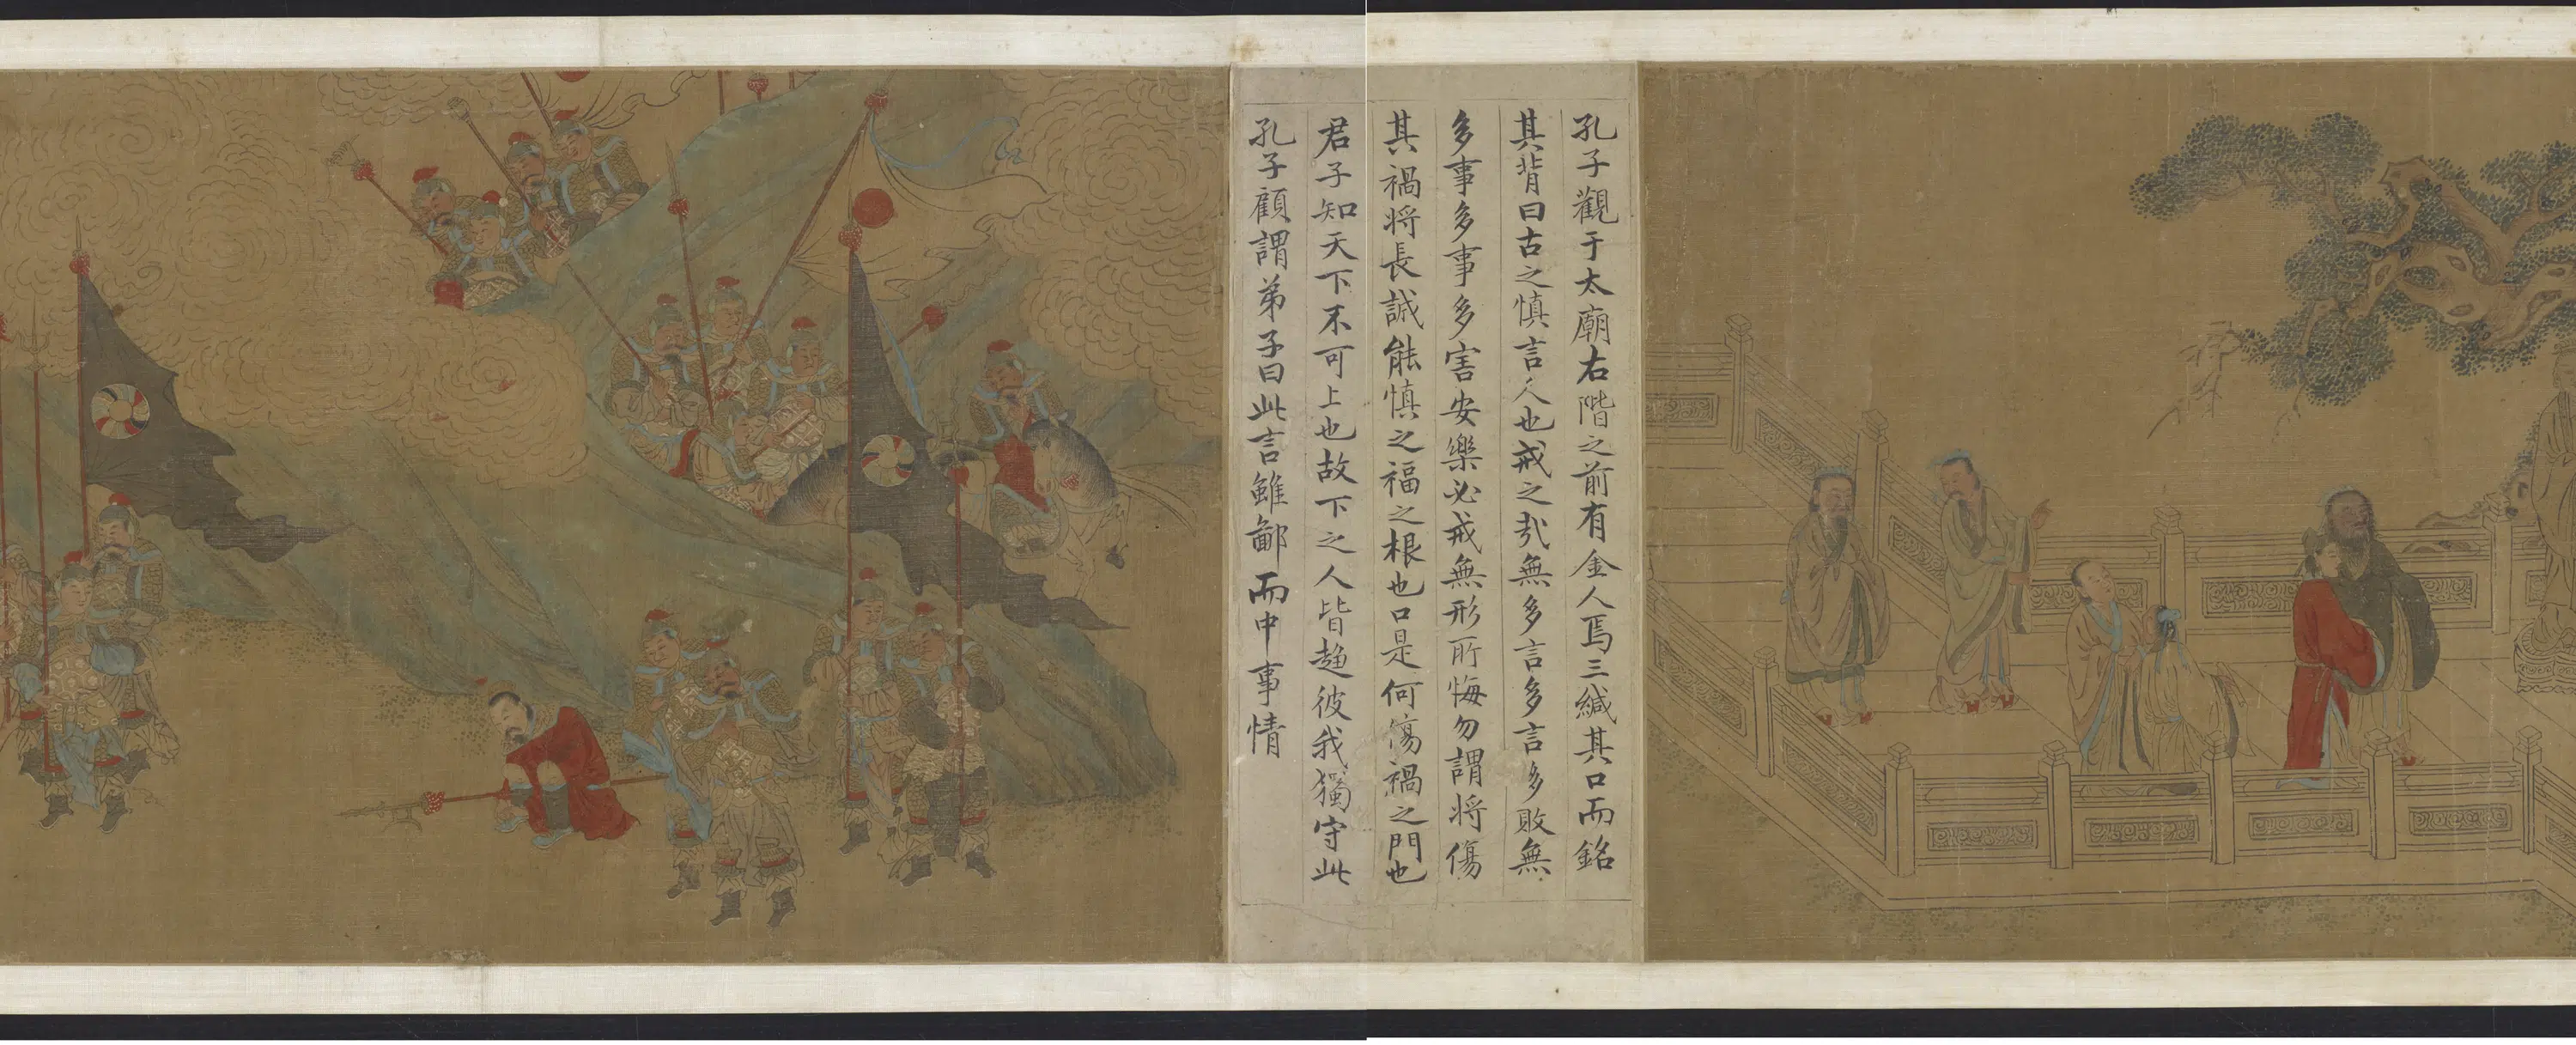 孔子觀于太廟右階之前有金人焉三緘其口而銘
其背曰古之慎言人也戒之㢤無多言多言多敗無
多事多事多害安樂必戒無形所悔勿謂將傷
其禍將長誠能慎之福之根也口是何傷禍之門也
君子知天下不可上也故下之人皆趋彼我獨守此
孔子顧謂弟子曰此言雖鄙而中事情